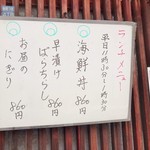 ランチメニュー
平日11時30分〜1時30分
海鮮丼 860円
早漬け
ばらちらし 860円
お昼の
にぎり 860円